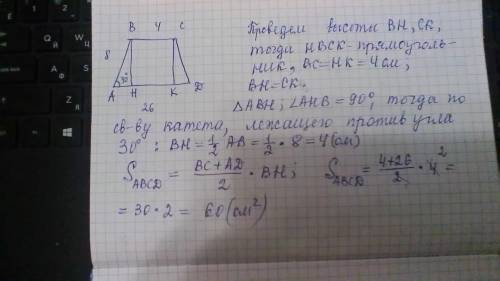 B 4 C
8
30°
A H K D
26
Проведем высоты BH, CK,
тогда HBCK – прямоуголь-
ник, BC=HK=4см;
BH=CK.
△ABH; ∠AHB=90°, тогда по
св-ву катета, лежащего против угла
30°: BH=1/2 AB=1/2·8=4(см)
S_ABCD = (BC+AD)/2 · BH; S_ABCD = (4+26)/2 · 4² =
=30·2= 60(см²)